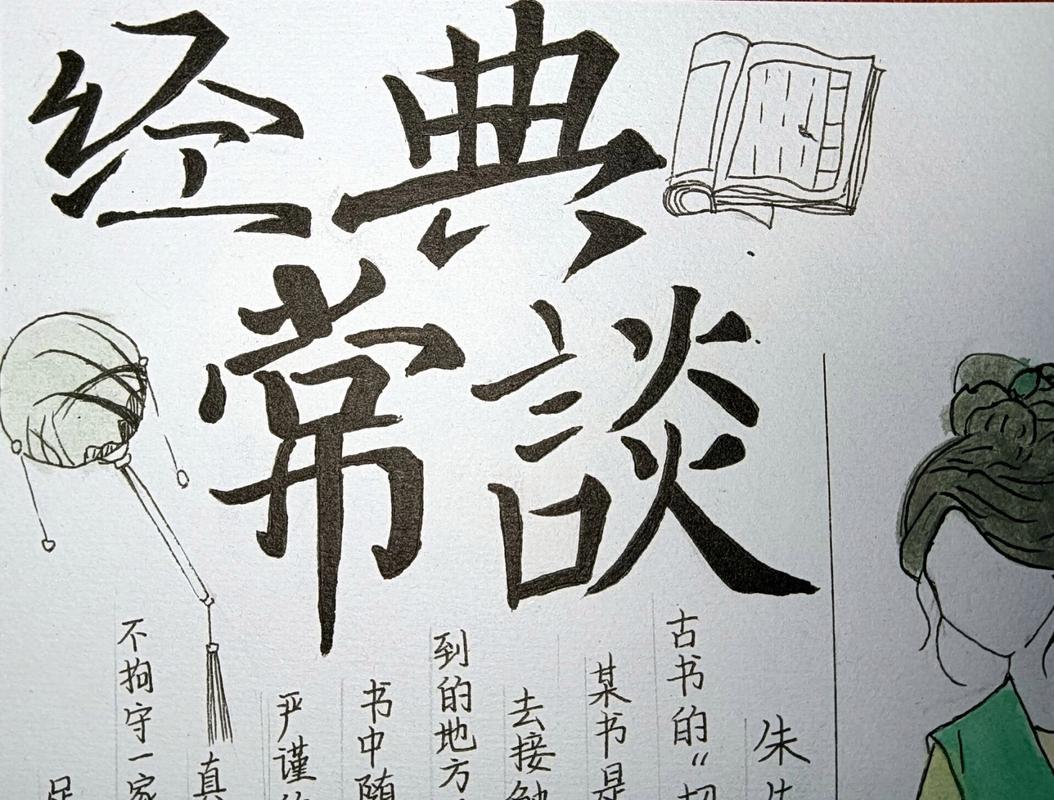 经典
常談
朱
古书的“
某书是
去接触
到的地方
书中随
严谨
真
不拘守一家
足